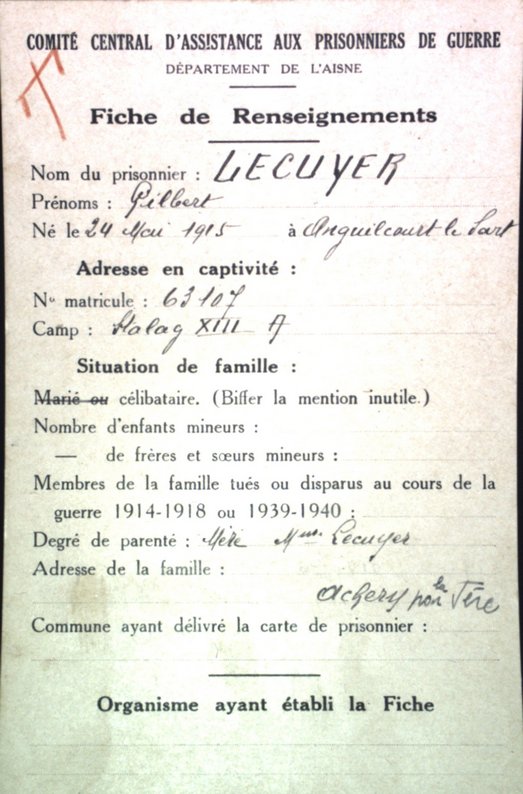 COMITÉ CENTRAL D'ASSISTANCE AUX PRISONNIERS DE GUERRE
DÉPARTEMENT DE L'AISNE
Fiche de Renseignements
Nom du prisonnier : LECUYER
Prénoms : Gilbert
Né le 24 Mai 1915 à Anguilcourt le Sart
Adresse en captivité :
No matricule : 63107
Camp : Stalag XIII A
Situation de famille :
Marié ou célibataire. (Biffer la mention inutile.)
Nombre d'enfants mineurs :
— de frères et sœurs mineurs :
Membres de la famille tués ou disparus au cours de la
guerre 1914-1918 ou 1939-1940 :
Degré de parenté : Mère Mme Lecuyer
Adresse de la famille :
Achery par la Fère
Commune ayant délivré la carte de prisonnier :
Organisme ayant établi la Fiche